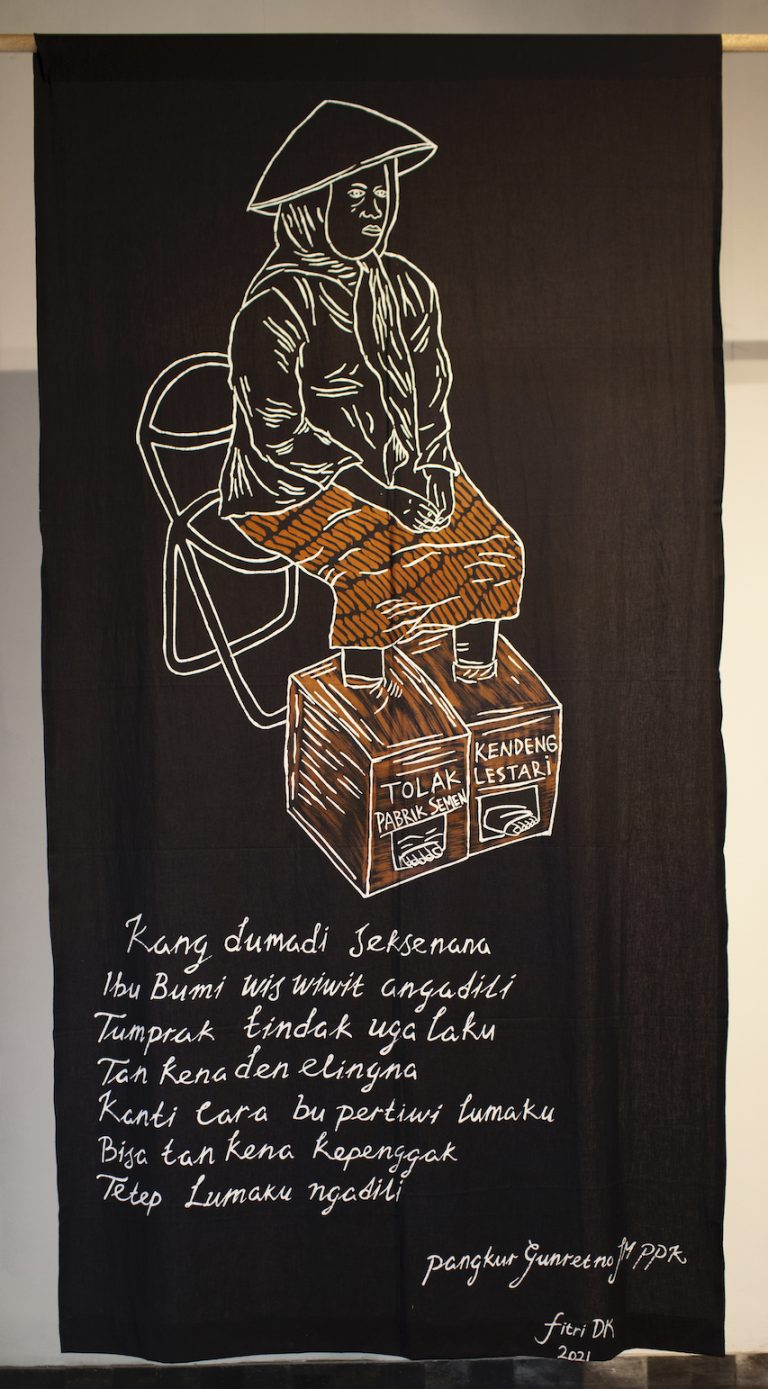 TOLAK
PABRIK SEMEN
KENDENG
LESTARI
Kang dumadi seksenana
Ibu Bumi wis wiwit angadili
Tumprak tindak uga laku
Tan kena den elingna
Kanti Cara bu pertiwi lumaku
Bisa tan kena kepenggak
Tetep Lumaku ngadili
pangkur Gunretno JM PPK
fitri DK
2021